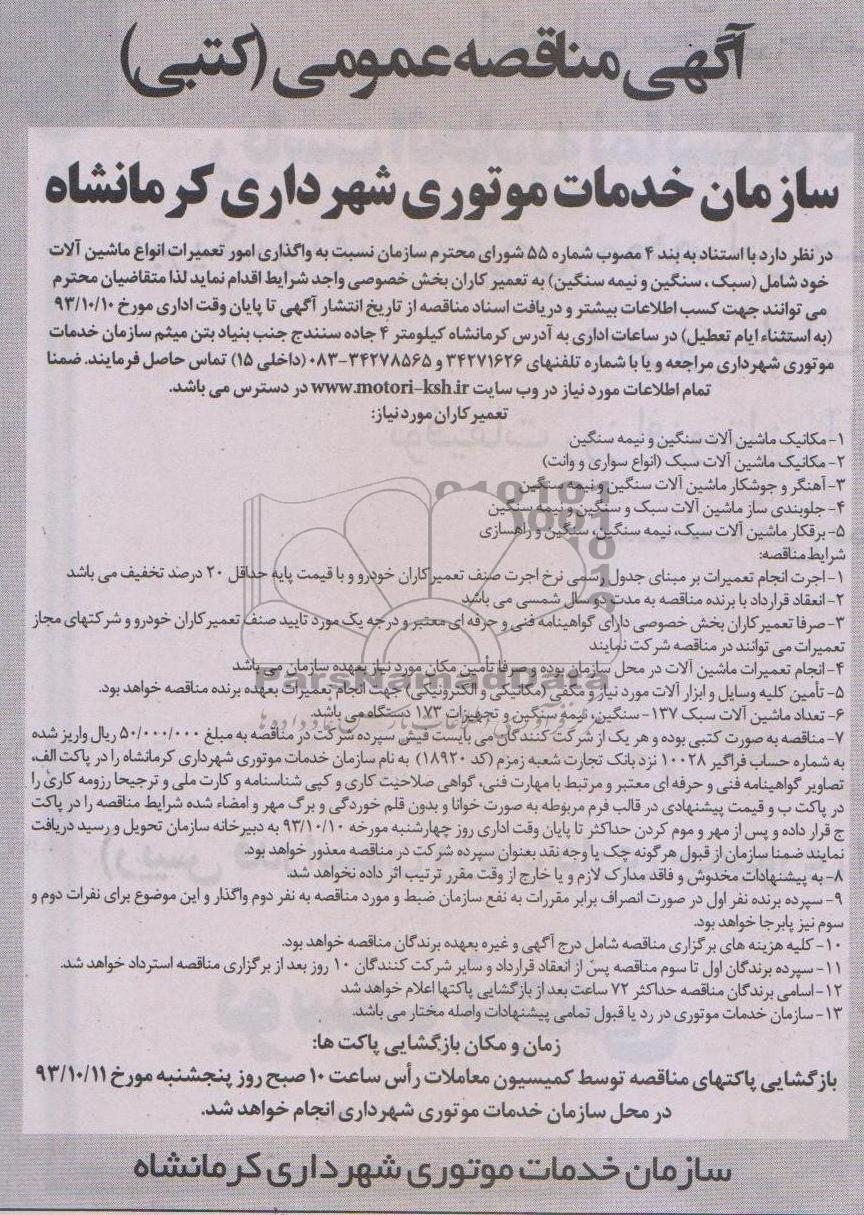 آگهی مناقصه عمومی (کتبی)
سازمان خدمات موتوری شهرداری کرمانشاه
در نظر دارد با استناد به بند ۴ مصوب شماره ۵۵ شورای محترم سازمان نسبت به واگذاری امور تعمیرات انواع ماشین آلات
خود شامل (سبک ، سنگین و نیمه سنگین) به تعمیر کاران بخش خصوصی واجد شرایط اقدام نماید لذا متقاضیان محترم
می توانند جهت کسب اطلاعات بیشتر و دریافت اسناد مناقصه از تاریخ انتشار آگهی تا پایان وقت اداری مورخ ۹۳/۱۰/۱۰
(به استثناء ایام تعطیل) در ساعات اداری به آدرس کرمانشاه کیلومتر ۴ جاده سنندج جنب بنیاد بتن میثم سازمان خدمات
موتوری شهرداری مراجعه و یا با شماره تلفنهای ۳۴۲۷۱۶۲۶ و ۳۴۲۷۸۵۶۵-۰۸۳ (داخلی ۱۵) تماس حاصل فرمایند. ضمنا
تمام اطلاعات مورد نیاز در وب سایت www.motori-ksh.ir در دسترس می باشد.
تعمیر کاران مورد نیاز:
۱- مکانیک ماشین آلات سنگین و نیمه سنگین
۲- مکانیک ماشین آلات سبک (انواع سواری و وانت)
۳- آهنگر و جوشکار ماشین آلات سنگین و نیمه سنگین
۴- جلوبندی ساز ماشین آلات سبک و سنگین و نیمه سنگین
۵- برقکار ماشین آلات سبک، نیمه سنگین، سنگین و راهسازی
شرایط مناقصه:
۱- اجرت انجام تعمیرات بر مبنای جدول رسمی نرخ اجرت صنف تعمیر کاران خودرو و با قیمت پایه حداقل ۲۰ درصد تخفیف می باشد
۲- انعقاد قرارداد با برنده مناقصه به مدت دو سال شمسی می باشد
۳- صرفا تعمیر کاران بخش خصوصی دارای گواهینامه فنی و حرفه ای معتبر و درجه یک مورد تایید صنف تعمیر کاران خودرو و شرکتهای مجاز
تعمیرات می توانند در مناقصه شرکت نمایند
۴- انجام تعمیرات ماشین آلات در محل سازمان بوده و صرفا تأمین مکان مورد نیاز بعهده سازمان می باشد
ParsNamadData
۵- تأمین کلیه وسایل و ابزار آلات مورد نیاز و مکفی (مکانیکی و الکترونیکی) جهت انجام تعمیرات بعهده برنده مناقصه خواهد بود.
۶- تعداد ماشین آلات سبک ۱۳۷- سنگین، نیمه سنگین و تجهیزات ۱۷۳ دستگاه می باشد.
۷- مناقصه به صورت کتبی بوده و هر یک از شرکت کنندگان می بایست فیش سپرده شرکت در مناقصه به مبلغ ۵۰/۰۰۰/۰۰۰ ریال واریز شده
به شماره حساب فراگیر ۱۰۰۲۸ نزد بانک تجارت شعبه زمزم (کد ۱۸۹۲۰) به نام سازمان خدمات موتوری شهرداری کرمانشاه را در پاکت الف،
تصاویر گواهینامه فنی و حرفه ای معتبر و مرتبط با مهارت فنی، گواهی صلاحیت کاری و کپی شناسنامه و کارت ملی و ترجیحا رزومه کاری را
در پاکت ب و قیمت پیشنهادی در قالب فرم مربوطه به صورت خوانا و بدون قلم خوردگی و برگ مهر و امضاء شده شرایط مناقصه را در پاکت
ج قرار داده و پس از مهر و موم کردن حداکثر تا پایان وقت اداری روز چهارشنبه مورخه ۹۳/۱۰/۱۰ به دبیرخانه سازمان تحویل و رسید دریافت
نمایند ضمنا سازمان از قبول هر گونه چک یا وجه نقد بعنوان سپرده شرکت در مناقصه معذور خواهد بود.
۸- به پیشنهادات مخدوش و فاقد مدارک لازم و یا خارج از وقت مقرر ترتیب اثر داده نخواهد شد.
۹- سپرده برنده نفر اول در صورت انصراف برابر مقررات به نفع سازمان ضبط و مورد مناقصه به نفر دوم واگذار و این موضوع برای نفرات دوم و
سوم نیز پابرجا خواهد بود.
۱۰- کلیه هزینه های برگزاری مناقصه شامل درج آگهی و غیره بعهده برندگان مناقصه خواهد بود.
۱۱- سپرده برندگان اول تا سوم مناقصه پس از انعقاد قرارداد و سایر شرکت کنندگان ۱۰ روز بعد از برگزاری مناقصه استرداد خواهد شد.
۱۲- اسامی برندگان مناقصه حداکثر ۷۲ ساعت بعد از بازگشایی پاکتها اعلام خواهد شد
۱۳- سازمان خدمات موتوری در رد یا قبول تمامی پیشنهادات واصله مختار می باشد.
زمان و مکان بازگشایی پاکت ها:
بازگشایی پاکتهای مناقصه توسط کمیسیون معاملات رأس ساعت ۱۰ صبح روز پنجشنبه مورخ ۹۳/۱۰/۱۱
در محل سازمان خدمات موتوری شهرداری انجام خواهد شد.
سازمان خدمات موتوری شهرداری کرمانشاه